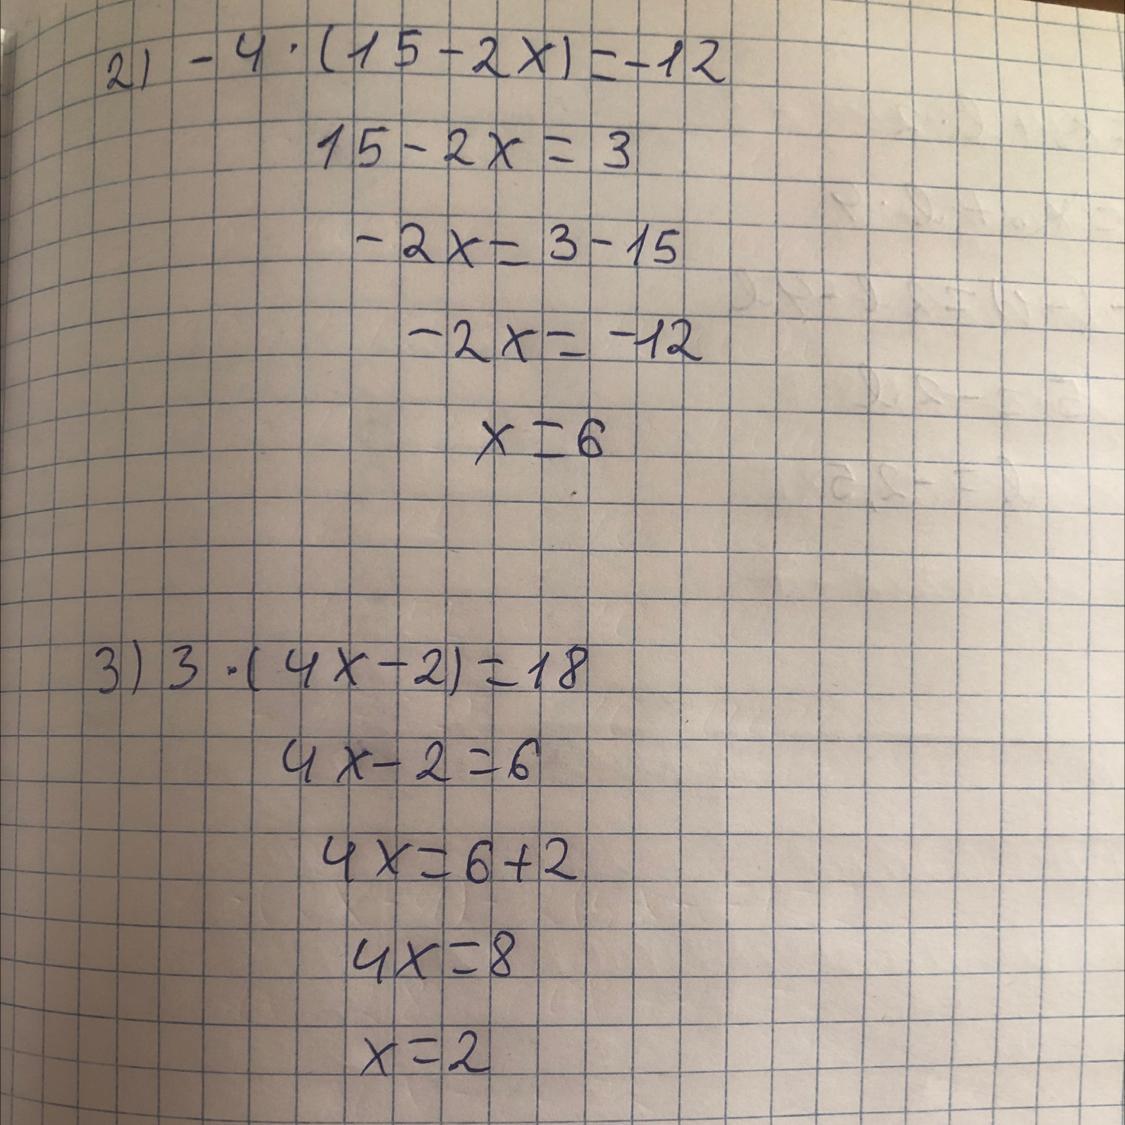 2) -4·(15-2x)=-12
15-2x=3
-2x=3-15
-2x=-12
x=6
3) 3·(4x-2)=18
4x-2=6
4x=6+2
4x=8
x=2